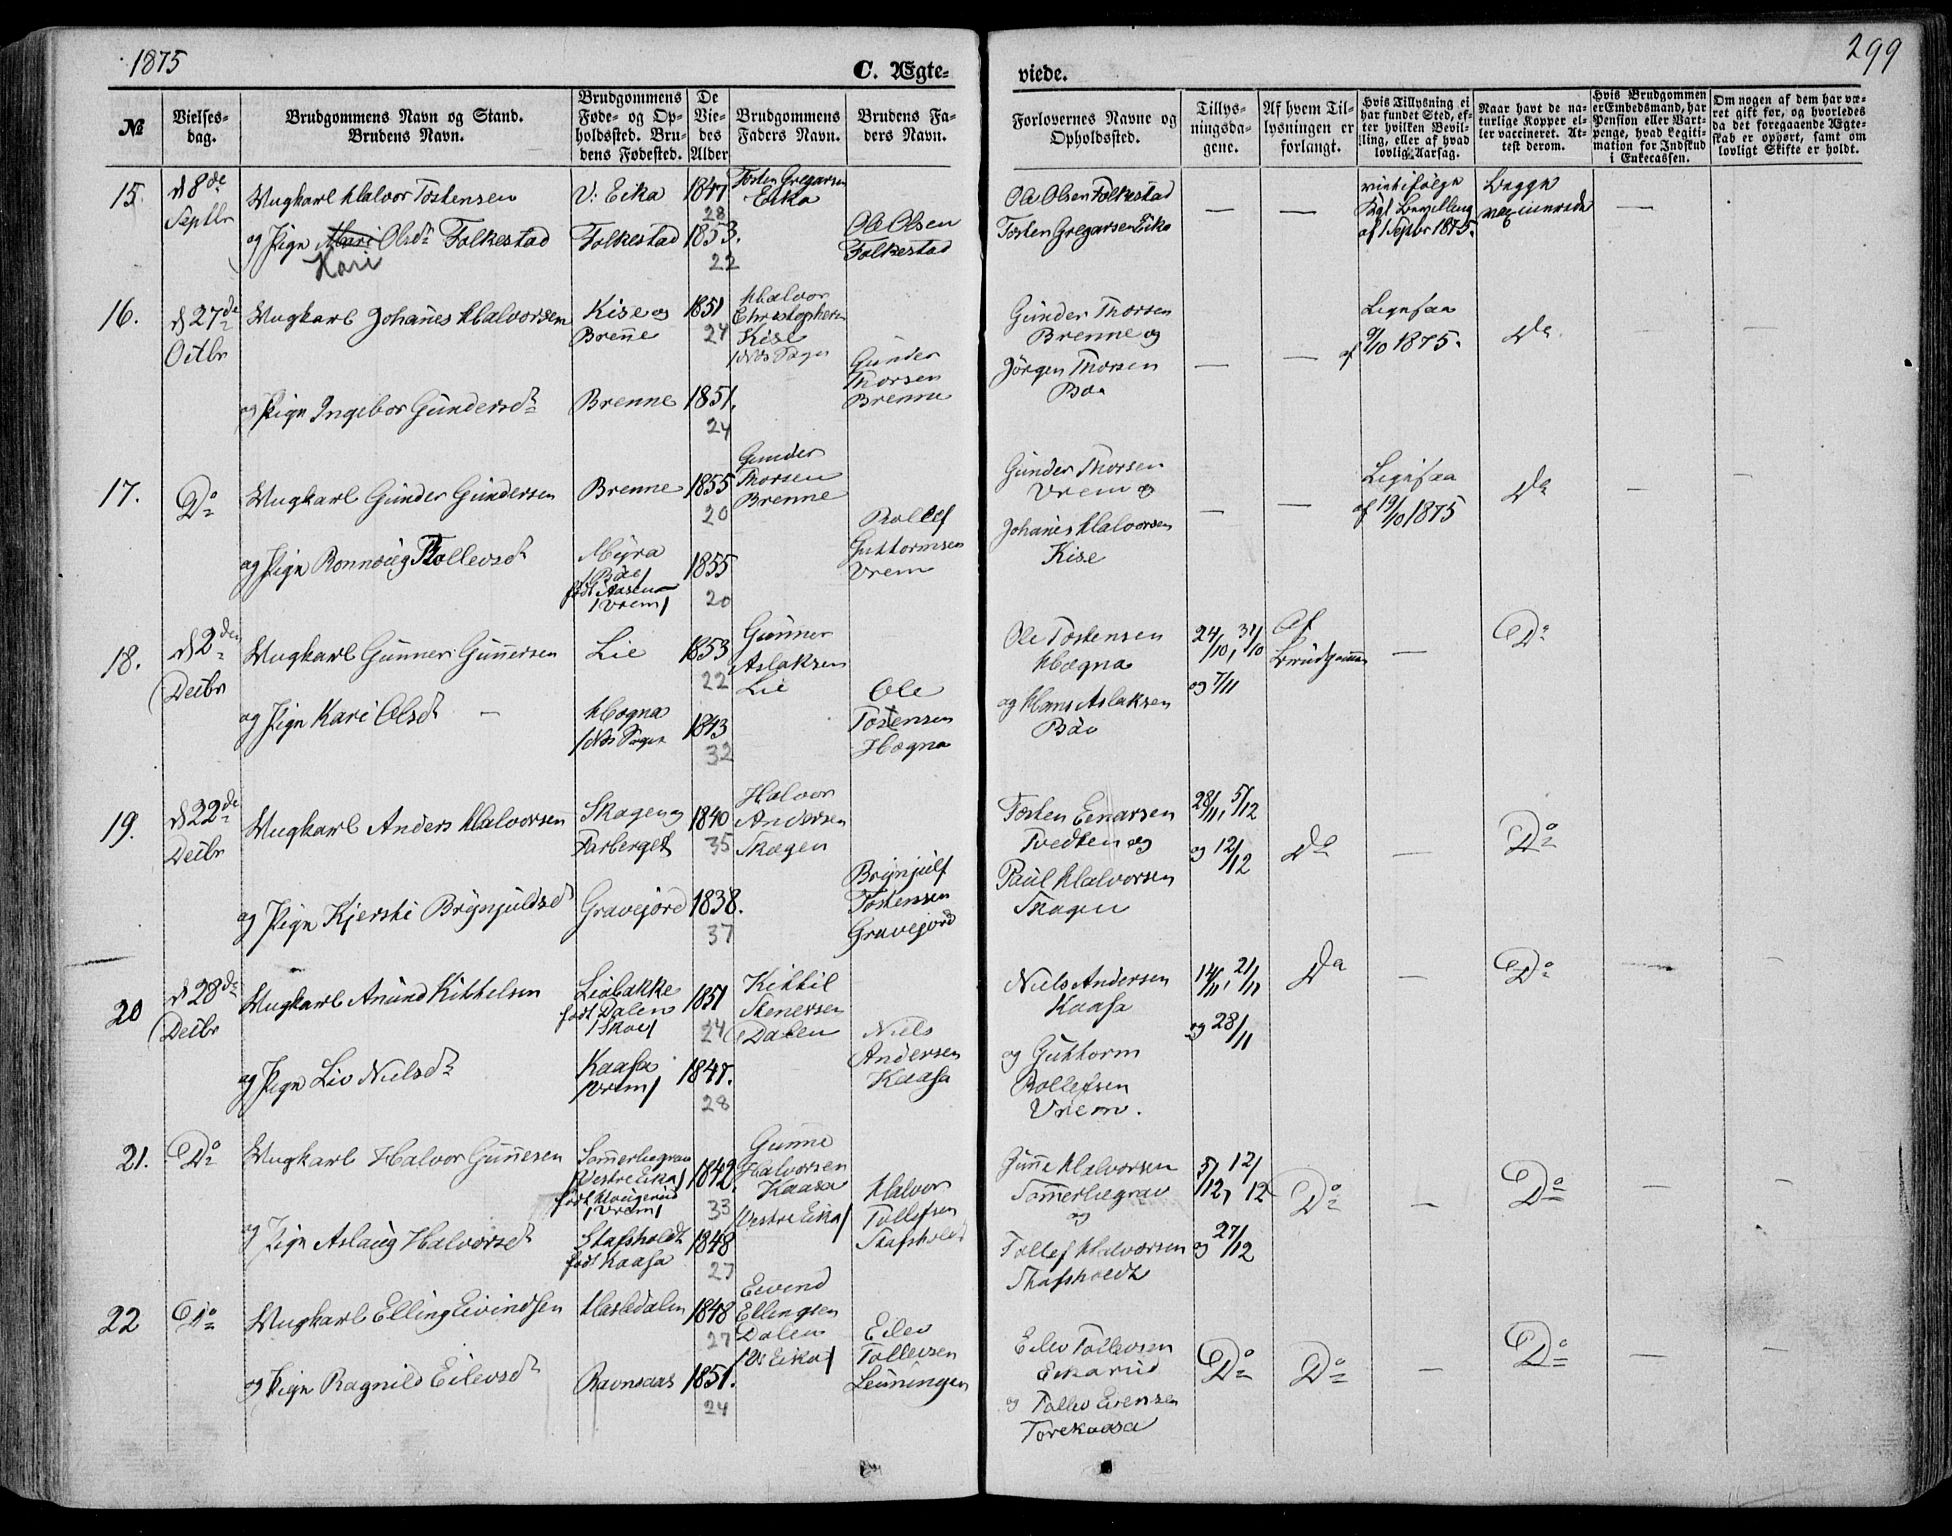 1875
299
C. Ægte-
viede.
№
Vielses-
dag.
Brudgommens Navn og Stand.
Brudens Navn.
Brudgommens
Føde- og Op-
holdssted. Bru-
dens Fødested.
De
Vie-
des
Alder
Brudgommens
Faders Navn.
Brudens Fa-
ders Navn.
Forlovernes Navne og
Opholdssted.
Tillys-
ningsda-
gene.
Af hvem Til-
lysningen er
forlangt.
Hvis Tillysning ei
har fundet Sted, ef-
ter hvilken Bevil-
ling, eller af hvad
lovlig Aarsag.
Naar havt de na-
turlige Kopper el-
ler vaccineret. At-
test derom.
Hvis Brudgommen
er Embedsmand, har
Pension eller Vart-
penge, hvad Legiti-
mation for Indskud
i Enkecassen.
Om nogen af dem har væ-
ret gift før, og hvorledes
da det foregaaende Ægte-
skab er ophørt, samt om
lovligt Skifte er holdt.
15.
d 8de
Septbr
Ungkarl Halvor Tostensen
og Pige Mari Olsdr Folkestad
Kari
V: Eika
Folkestad
1847
28
1853.
22
Tosten Gregarsen
Eika
Ole Olsen
Folkestad
Ole Olsen Folkestad
Tosten Gregarsen Eika
— —
viet ifølge
Kgl Bevilling
af 1 Septbr 1875.
Begge
vaccinerede
—
16.
d 27de
Octbr
Ungkarl Johanes Halvorsen
og Pige Ingebor Gundersdr
Kise og
Brene
Brenne
1851
24
1851.
24
Halvor
Christophersen
Kise
Gunder
Thorsen
Brenne
Gunder Thorsen
Brenne og
Jörgen Thorsen
Böe
— —
af 9/10 1875.
Do
— —
17.
Do
Ungkarl Gunder Gundersen
og Pige Ronnoug Tollevsdr
Brenne
Myra
/Böe/
født Aasen
/Vrem/
1855
20
1855
20
Gunder
Thorsen
Brenne
Rollef
Guttormsen
Vrem
Gunder Thorsen
Vrem og
Johanes Halvorsen
Kise
— —
af 19/10 1875
Do
— —
18.
d 2den
Decbr
Ungkarl Gunner Gunnersen
og Pige Kari Olsdr —
Lie
Hogna
1853
22
1843
32
Gunner
Aslaksen
Lie
Ole
Tostensen
Hogna
Ole Tostensen
Hægna
og Hans Aslaksen
Böe
24/10, 31/10
og 7/11
Af
Brudgommen
—
Do
19.
d 22de
Decbr
Ungkarl Anders Halvorsen
og Pige Kjersti Brynjulfsdr
Skogen og
Farberget
Gravejord
1840
35
1838.
37
Halvor
Andersen
Skogen
Brynjulf
Tostensen
Gravejord
Tosten Eenarsen
Tvedten og
Paul Halvorsen
Skogen
28/11, 5/12
og 12/12
Do
—
Do
— —
20
d 28de
Decbr
Ungkarl Anund Kittelsen
og Pige Liv Nielsdr
Liabakke
født Dalen
/Skoe/
Kaasa
/Vrem/
1851
24
1847.
28
Kittil
Stenersen
Dalen
Niels
Andersen
Kaasa
Niels Andersen
Kaasa
og Guttorm
Rollefsen
Vrem.
14/11, 21/11
og 28/11
Do
—
Do
— —
21.
Do
Ungkarl Halvor Gunnesen
og Pige Aslaug Halvorsdr
Sommerliegrav
/Vestre Eika/
født Hougerud
/Vrem/
Stafsholdt
født Kaasa
1842.
33
1848
27
Gunne
Halvorsen
Kaasa
/Vestre Eika/
Halvor
Tollefsen
Stafsholdt
Gunne Halvorsen
Sommerliegrav
og
Tollef Halvorsen
Stafsholdt
5/12, 12/12
og 27/12
Do
—
Do
— —
22
Do
Ungkarl Elling Eivindsen
og Pige Ragnild Eilevsdr
Hasledalen
Ravnaas
1848
27
1851.
24
Eivend
Ellingsen
Dalen
/V: Eika/
Eilev
Tollevsen
Eilev Tollevsen
Eikarud
og Tollev Evensen
Torekaasa
Do
Do
—
Do
— —